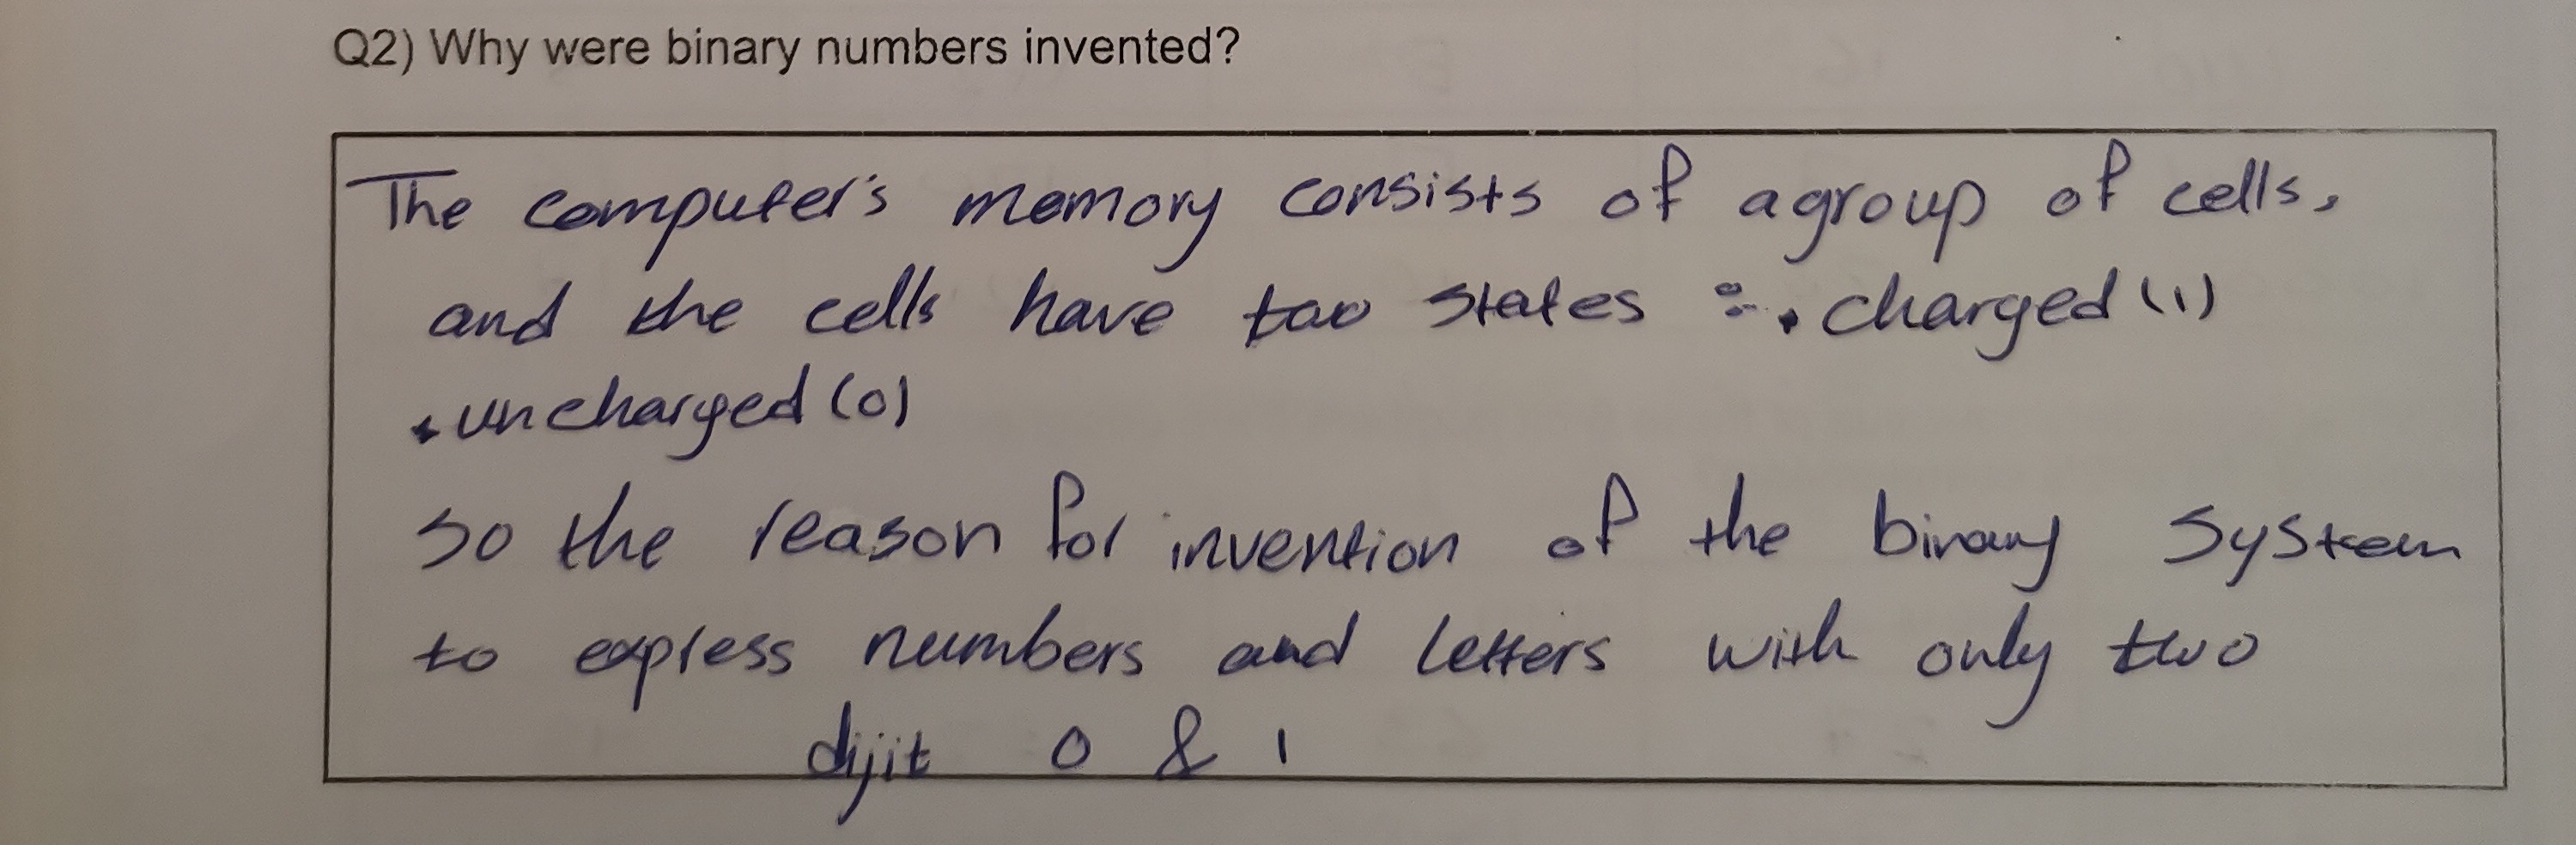 Q2) Why were binary numbers invented?
The computer's memory consists of agroup of cells,
and the cells have two states : • charged (1)
• uncharged (0)
so the reason for invention of the binary system
to express numbers and letters with only two
dijit 0 & 1